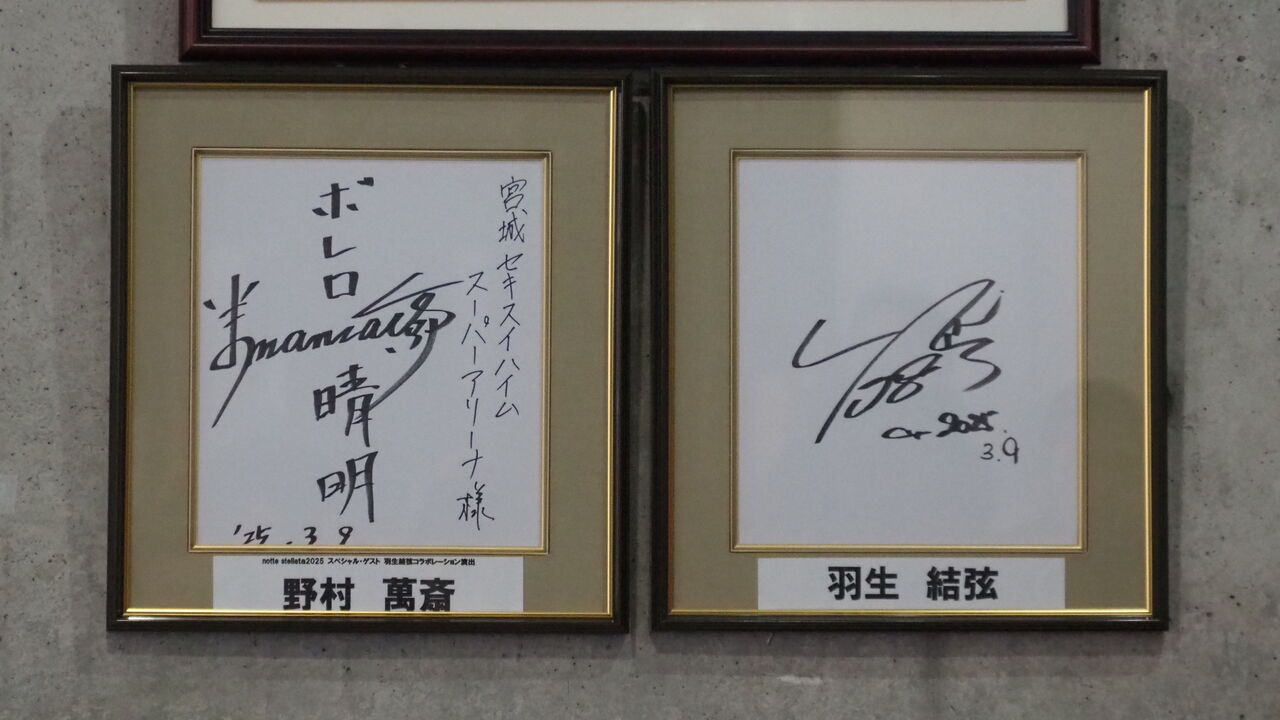 宮城セキスイハイム
スーパーアリーナ様
ボレロ
晴明
'25.3.9
notte stellata2025 スペシャル・ゲスト 羽生結弦コラボレーション演出
野村 萬斎
2025.
3.9
羽生 結弦